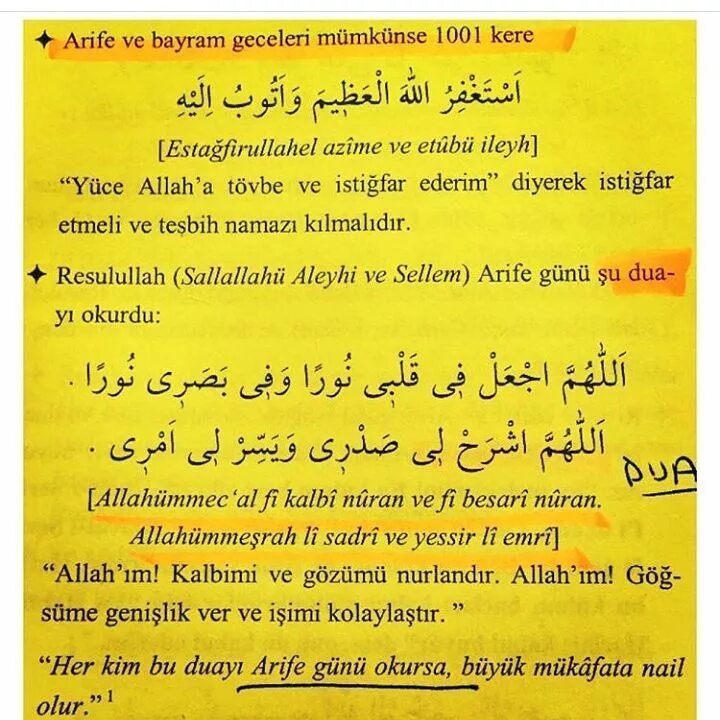 ✦ Arife ve bayram geceleri mümkünse 1001 kere
اَسْتَغْفِرُ اللّٰهَ الْعَظٖيمَ وَاَتُوبُ اِلَيْهِ
[Estağfirullahel azîme ve etûbü ileyh]
“Yüce Allah’a tövbe ve istiğfar ederim” diyerek istiğfar
etmeli ve teşbih namazı kılmalıdır.
✦ Resulullah (Sallallahü Aleyhi ve Sellem) Arife günü şu dua-
yı okurdu:
اَللّٰهُمَّ اجْعَلْ فٖى قَلْبٖى نُورًا وَفٖى بَصَرٖى نُورًا .
اَللّٰهُمَّ اشْرَحْ لٖى صَدْرٖى وَيَسِّرْ لٖى اَمْرٖى .
DUA
[Allahümmec‘al fî kalbî nûran ve fî besarî nûran.
Allahümmeşrah lî sadrî ve yessir lî emrî]
“Allah’ım! Kalbimi ve gözümü nurlandır. Allah’ım! Göğ-
süme genişlik ver ve işimi kolaylaştır. ”
“Her kim bu duayı Arife günü okursa, büyük mükâfata nail
olur.”¹